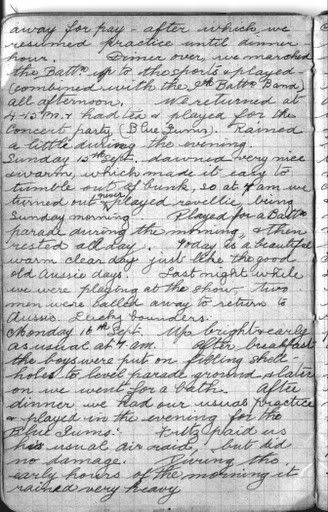 away for pay - after which we
resumed practice until dinner
hour. Dinner over, we marched
the Battn. up to the sports & played -
(combined with the 9th Battn Band)
all afternoon. We returned at
4-15 P.M. & had tea & played for the
Concert party, (Blue Gums). Rained
a little during the evening.
Sunday 15th Sept. dawned very nice
& warm, which made it easy to
tumble out of bunk, so at 7 am we
turned out & played reveille, being
never
Sunday morning. Played for a Battn
parade during the morning, & then
rested all day. Today is a beautiful
warm clear day just like the good
old Aussie days. Last night while
we were playing at the show two
men were called away to return to
Aussie. Lucky bounders.
Monday 16th Sept. Up bright & early
as usual at 7 am. After breakfast
the boys were put on filling shell
holes to level parade ground & later
on we went for a bath. After
dinner we had our usual practice
& played in the evening for the
Blue Gums. Fritz paid us
his usual air raid, but did
no damage. During the
early hours of the morning it
rained very heavy